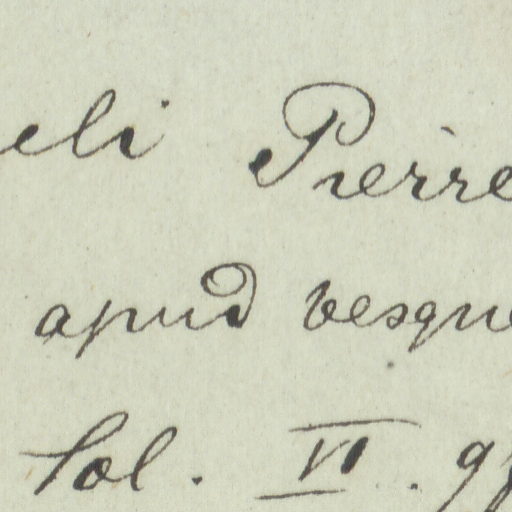 eli Pierre
apud vesque
Sol. VI. gf